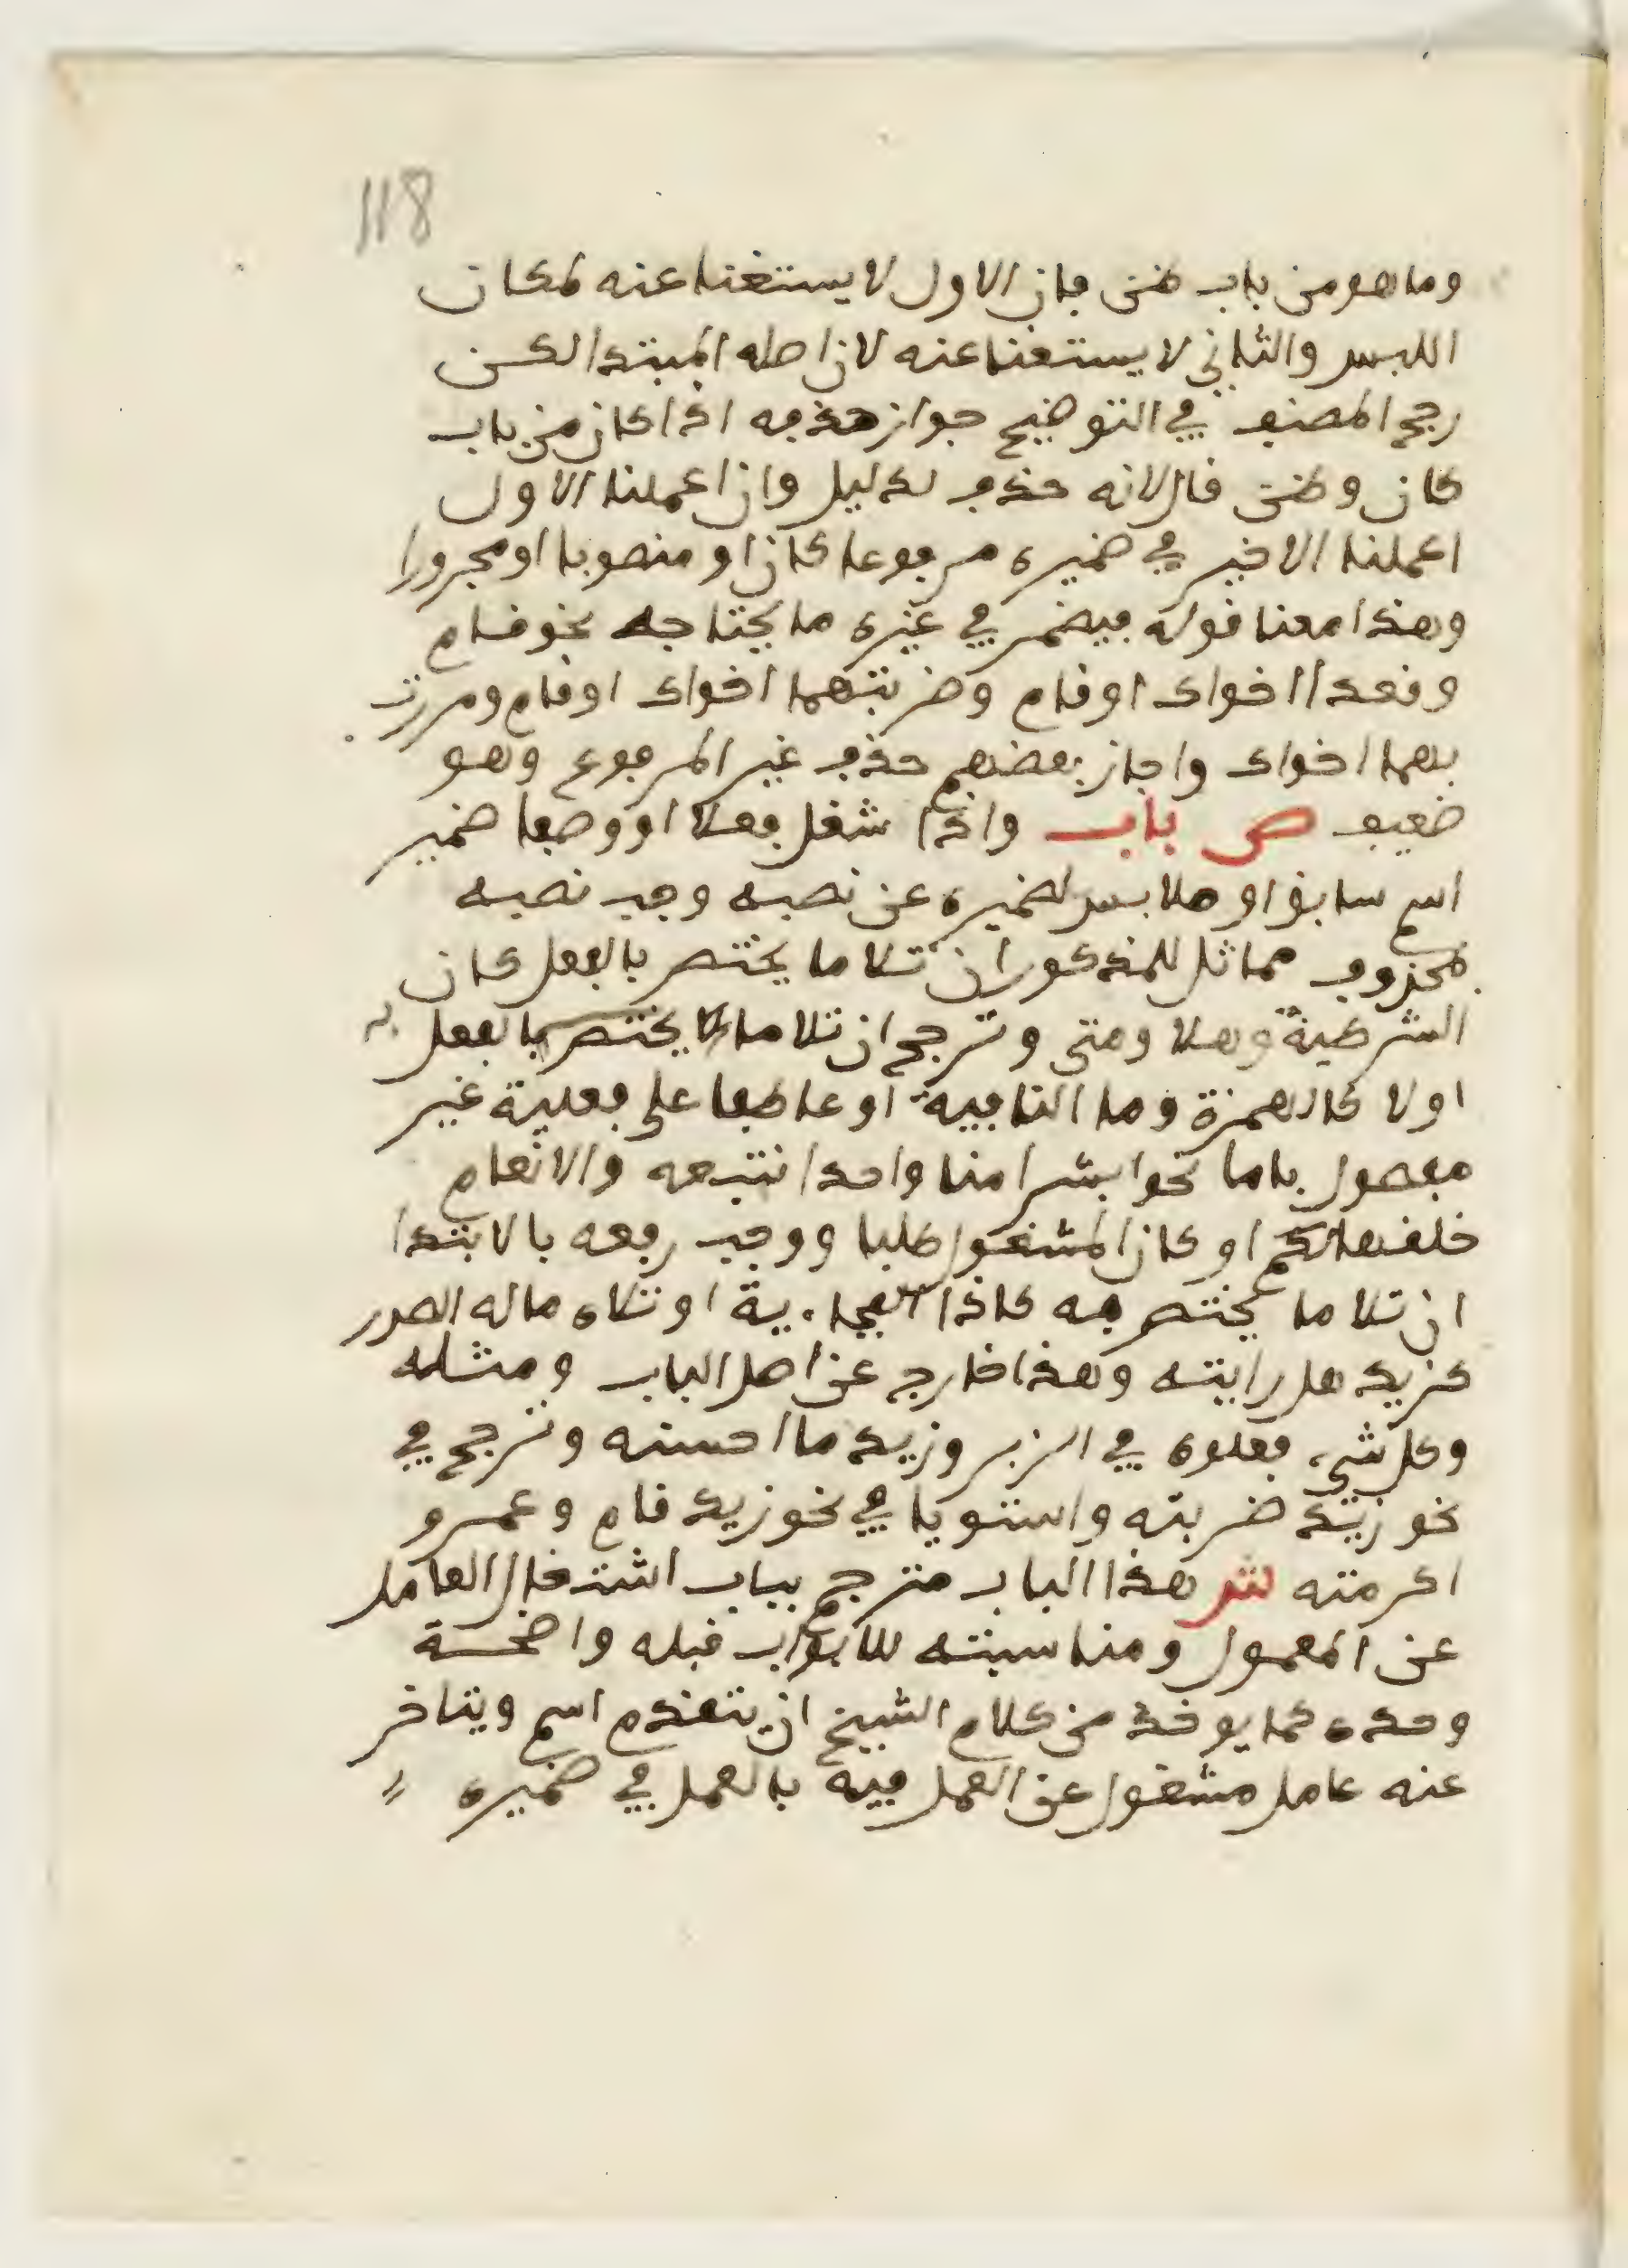 118
وما هو من باب ظن فإن الاول لا يستغنا عنه لمكان
اللبس والثاني لا يستغنا عنه لان اصله المبتدا لكن
رجح المصنف في التوضيح جواز حذفه اذا كان من باب
كان وظن قال لانه حذف لدليل وان اعملنا الاول
اعملنا الاخير في ضميره مرفوعا كان او منصوبا او مجرورا
وهذا معنا قوله فيضمر في غيره ما يحتاجه نحو قام
وقعدا اخواك او قام وضربتهما اخواك او قام ومررت
بهما اخواك واجاز بعضهم حذف غير المرفوع وهو
ضعيف ص باب واذا شغل فعلا او وصفا ضمير
اسم سابق او ملابس لضميره عن نصبه وجب نصبه
بمحذوف مماثل للمذكور ان تلا ما يختص بالفعل كان
الشرطية وهلا ومتى وترجح ان تلا ما لا يختص بالفعل به
اولا كالهمزة وما النافية او عاطفا على فعلية غير
مفصول باما نحو ابشرا منا واحدا نتبعه والانعام
خلقها لكم او كان المشغول طلبا ووجب رفعه بالابتدا
ان تلا ما يختص به كاذا الفجاءية او تلاه ماله الصدر
كزيد هل رايته وهذا خارج عن اصل الباب ومثله
وكل شيء فعلوه في الزبر وزيد ما احسنه وترجح في
نحو زيد ضربته واستويا في نحو زيد قام وعمرو
اكرمته ش هذا الباب مترجم بباب اشتغال العامل
عن المعمول ومناسبته للابواب قبله واضحة
وحده كما يوخذ من كلام الشيخ ان يتقدم اسم ويتاخر
عنه عامل مشغول عن العمل فيه بالعمل في ضميره